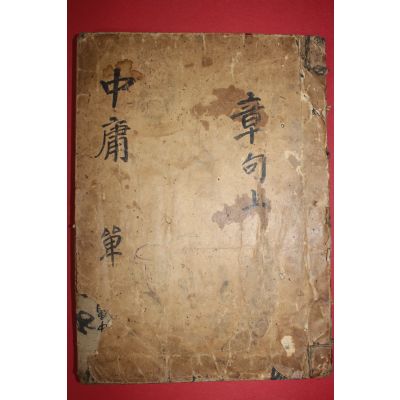 章句上
中庸 單